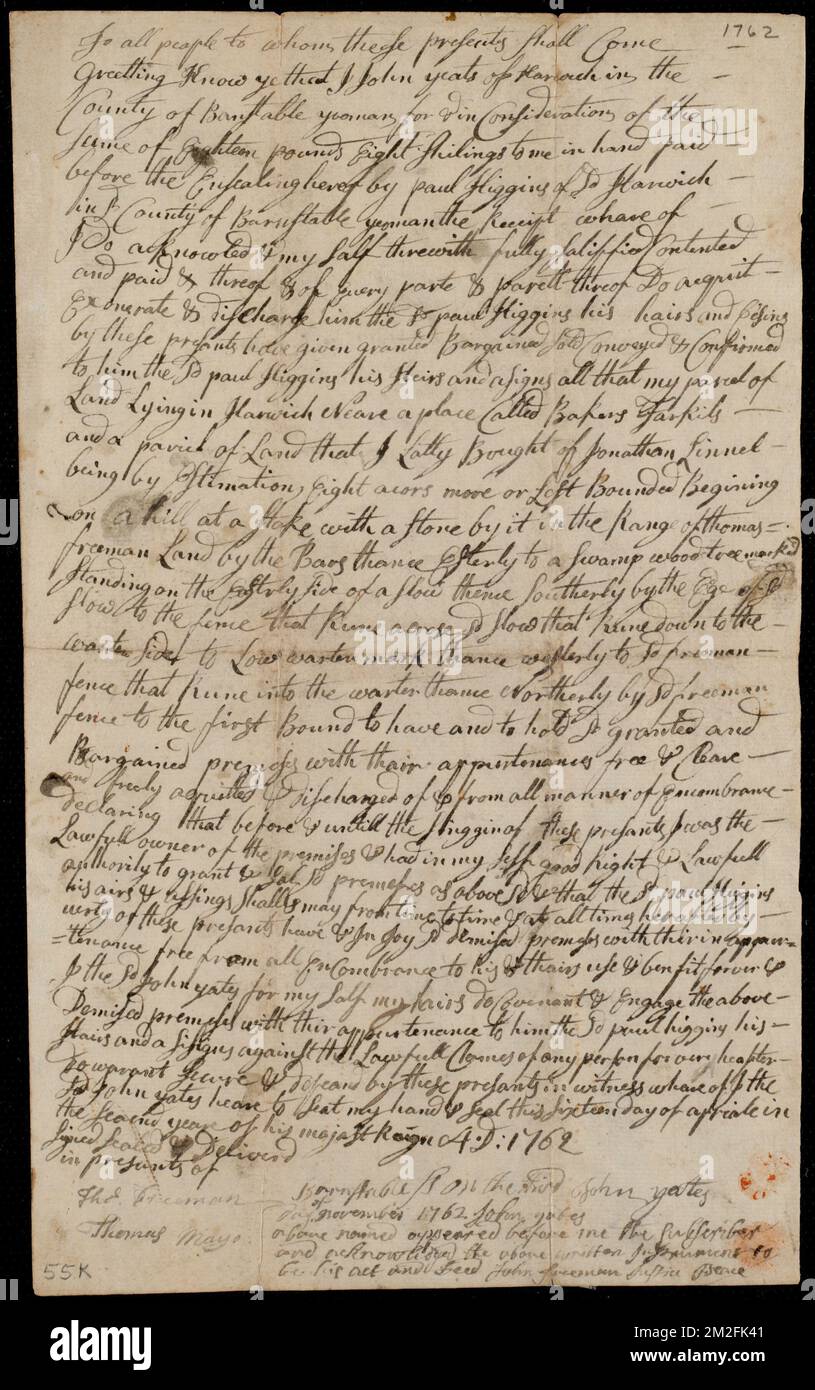 1762
To all people to whom these presents Shall Come
Greetting Know ye that I John yeats of Harwich in the
County of Barnstable yeoman for & in Consideration of the
sume of Eighteen pounds Eight Shilings to me in hand paid
before the Ensealing herof by paul Higgins of Sd Harwich
in Sd County of Barnstable yeoman the Receipt whare of
I Do acknowled & my Self threwith fully Satisfied Contented
and paid & threof & of every parte & parcell threof Do acquit
Exonerate & discharge him the Sd paul Higgins his hairs and
by these presants have given granted Bargained Sold Conveyed & Confirmed
to him the Sd paul Higgins his Heirs and asigns all that my parcel of
Land Lying in Harwich Neare a place Called Bakers
and a parcel of Land that I Latly Bought of Jonathan Linnel
being by Estimation Eight acors more or Less Bounded Begining
on a hill at a Stake with a Stone by it in the Range of thomas
freeman Land by the Bars thance Esterly to a Swamp wood tree marked
Standing on the Esterly Side of a Slow thence Southerly by the Ege of Sd
Slow to the fence that Runs acorss Sd Slow that Runs down to the
warter Side to Low warter mark thance westerly to Sd freeman
fence that Runs into the warter thance Northerly by Sd freeman
fence to the first Bound to have and to hold Sd granted and
Bargained premeses with thair appurtenances free & Cleare
and freely acquitted & Discharged of & from all manner of Encombrance
declaring that before & untill the of these presants I was the
Lawfull owner of the premises & had in my Self good Right & Lawfull
authority to grant & Sd premeses as above Sd & that the Sd paul Higgins
his airs & Shall & may from time to time & at all times hereafter by
verty of these presants have & In Joy Sd demised premeses with their appur=
=tenance free from all EnCombrance to his & thairs use & benfit forever &
I the Sd John yates for my Salf my hairs do Covenant & Engage the above
Demised premeses with thir appurtenance to him the Sd paul higgins his
Hairs and asigns against the Lawfull Clames of any person for ever heafter
To warant Secure & defeand by these presants in witness whare of I the
Sd John yates heare to Seat my hand & Seal this Sixteen day of aprile in
the Second yeare of his majast Reign A:D: 1762
Signed Sealed & Deliverd
in presants of
Tho. Freeman
Thomas Mayo
John yates
Barnstable Ss On the third
day of november 1762 John yates
above named appeared before me the Subscriber
and acknowlidged the above written Instrument to
be his act and deed John Freeman Justice Peace
55K
alamy
Image ID: 2M2FK41
www.alamy.com